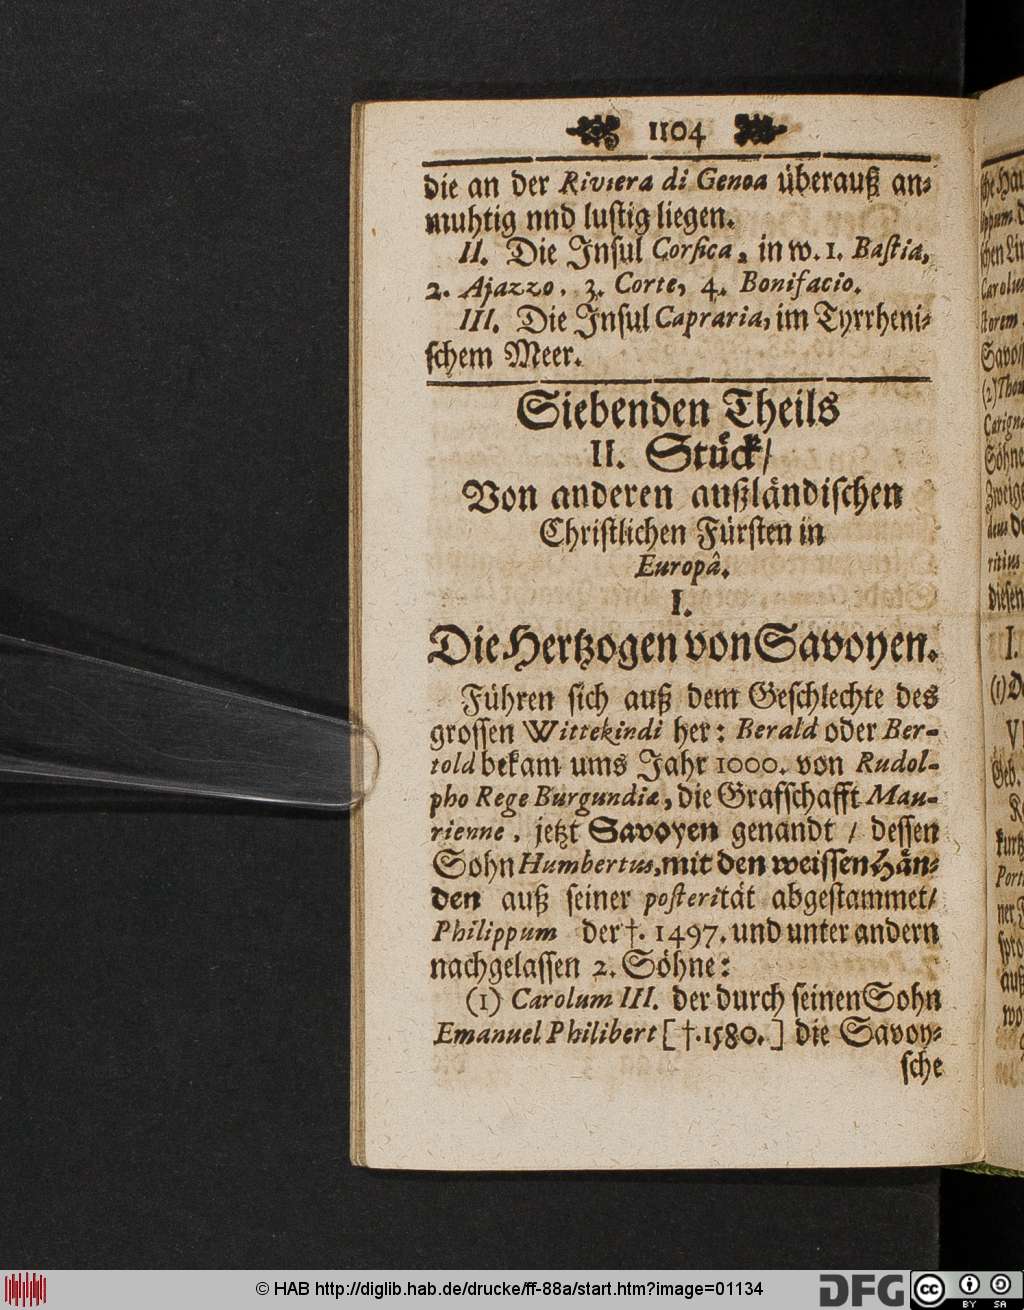 1104
die an der Riviera di Genoa überauß an-
muhtig nnd lustig liegen.
II. Die Insul Corsica, in w. 1. Bastia,
2. Ajazzo, 3. Corte, 4. Bonifacio.
III. Die Insul Capraria, im Tyrrheni-
schem Meer.
Siebenden Theils
II. Stück/
Von anderen außländischen
Christlichen Fürsten in
Europâ.
I.
Die Hertzogen von Savoyen.
Führen sich auß dem Geschlechte des
grossen Wittekindi her: Berald oder Ber-
told bekam ums Jahr 1000. von Rudol-
pho Rege Burgundiæ, die Grafschafft Mau-
rienne, jetzt Savoyen genandt / dessen
Sohn Humbertus, mit den weissen Hän-
den auß seiner posterität abgestammet/
Philippum der †. 1497. und unter andern
nachgelassen 2. Söhne:
(1) Carolum III. der durch seinen Sohn
Emanuel Philibert [†. 1580.] die Savoy-
sche
© HAB http://diglib.hab.de/drucke/ff-88a/start.htm?image=01134
DFG
cc
BY SA